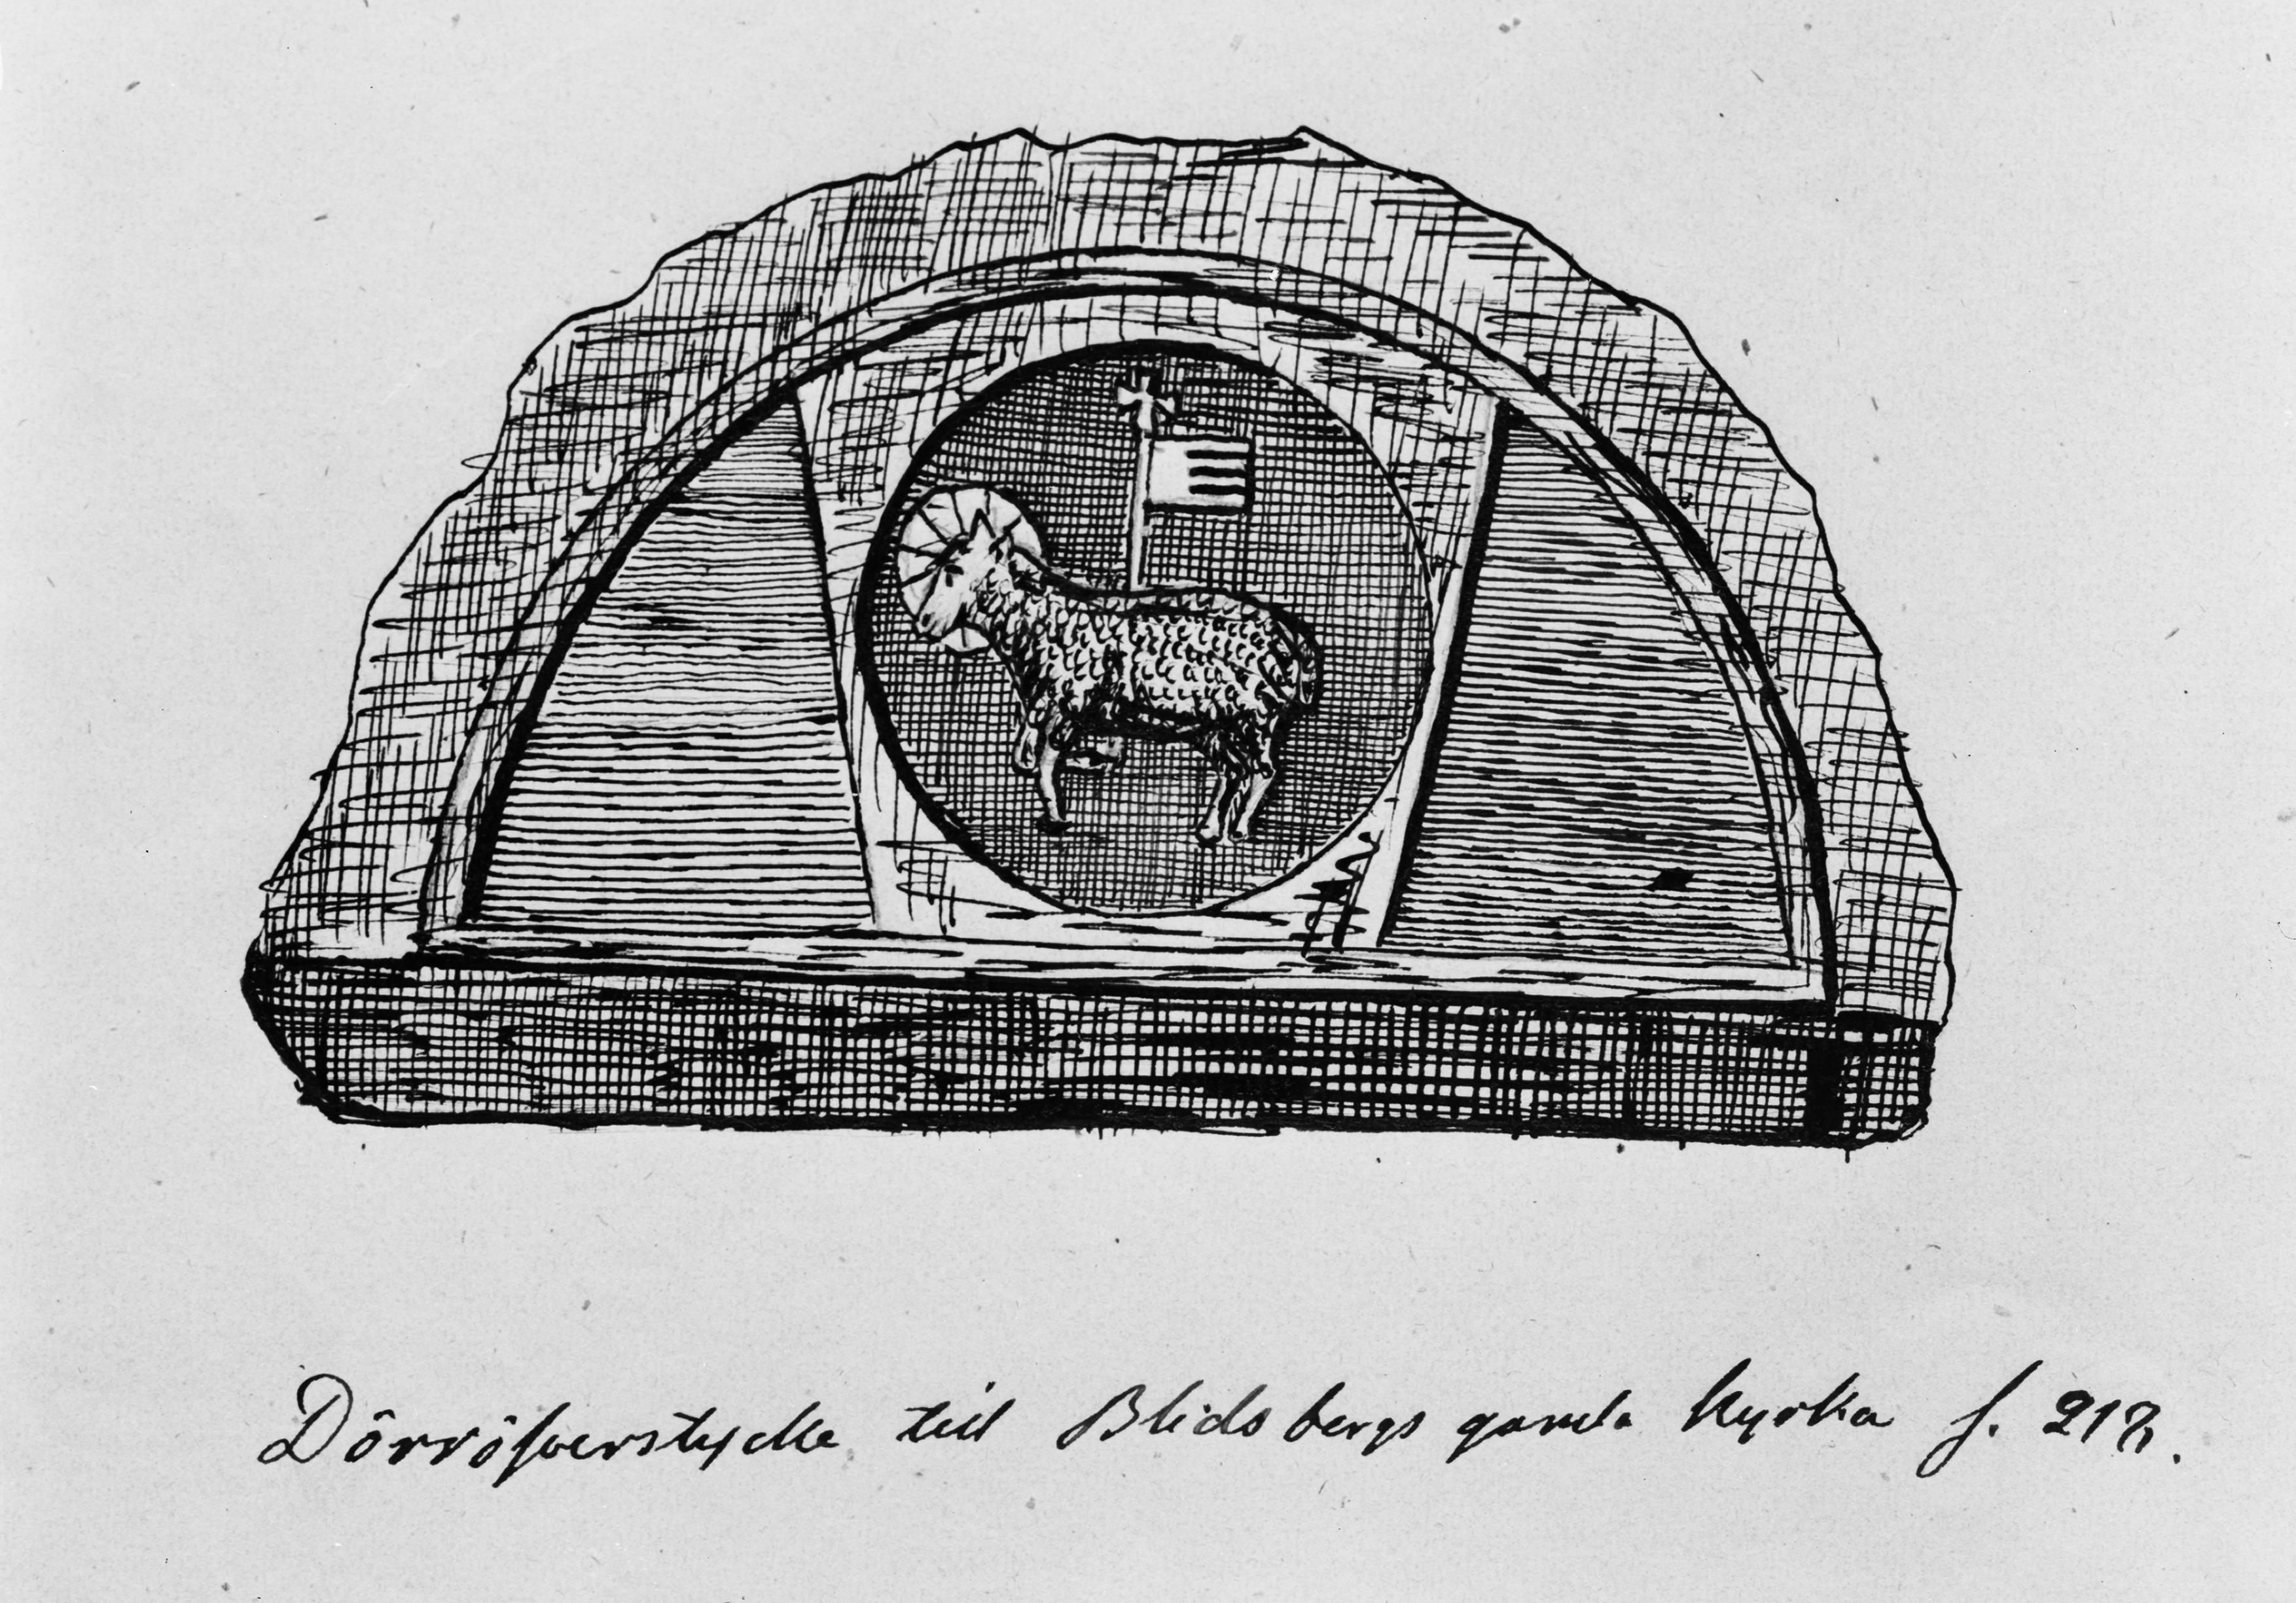 Dörröfverstycke till Blidsbergs gamla kyrka f. 217.